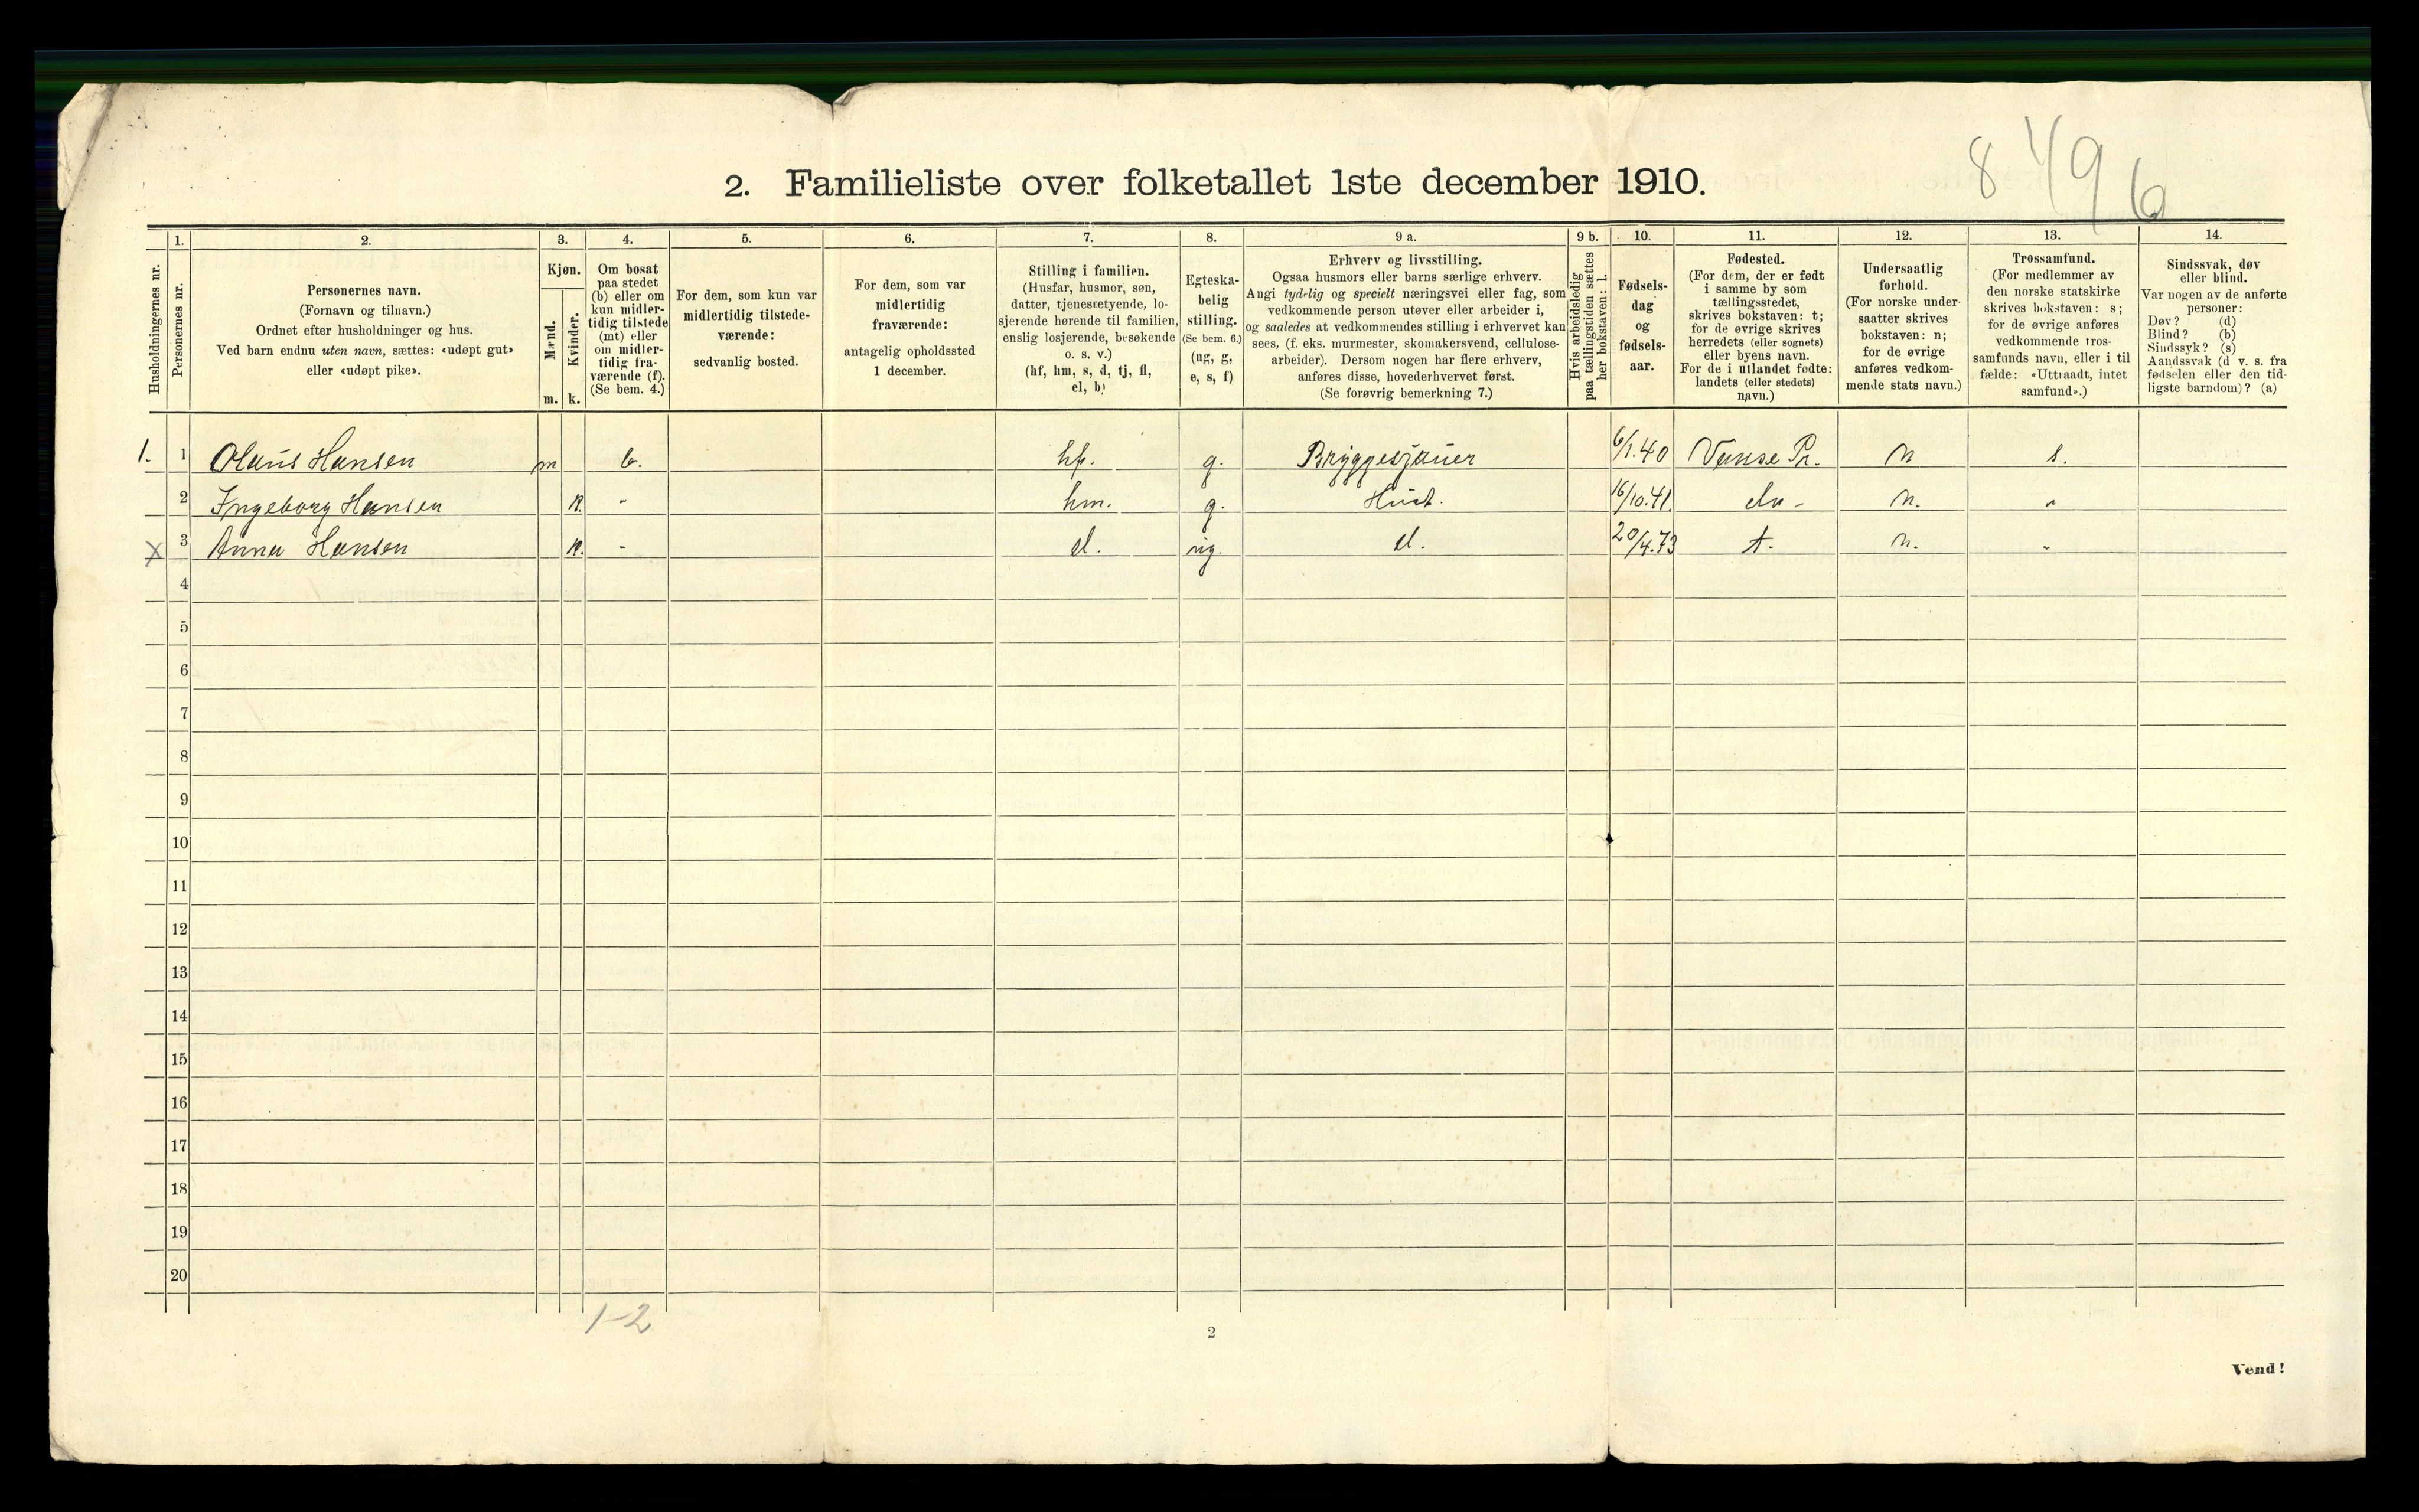 8 496
2. Familieliste over folketallet 1ste december 1910.
Husholdningernes nr.
1.
Personernes nr.
2.
Personernes navn.
(Fornavn og tilnavn.)
Ordnet efter husholdninger og hus.
Ved barn endnu uten navn, sættes: «udøpt gut»
eller «udøpt pike».
3.
Kjøn.
Mænd.
m.
Kvinder.
k.
4.
Om bosat
paa stedet
(b) eller om
kun midler-
tidig tilstede
(mt) eller
om midler-
tidig fra-
værende (f).
(Se bem. 4.)
5.
For dem, som kun var
midlertidig tilstede-
værende:
sedvanlig bosted.
6.
For dem, som var
midlertidig
fraværende:
antagelig opholdssted
1 december.
7.
Stilling i familien.
(Husfar, husmor, søn,
datter, tjenestetyende, lo-
sjerende hørende til familien,
enslig losjerende, besøkende
o. s. v.)
(hf, hm, s, d, tj, fl,
el, b)
8.
Egteska-
belig
stilling.
(Se bem. 6.)
(ug, g,
e, s, f)
9 a.
Erhverv og livsstilling.
Ogsaa husmors eller barns særlige erhverv.
Angi tydelig og specielt næringsvei eller fag, som
vedkommende person utøver eller arbeider i,
og saaledes at vedkommendes stilling i erhvervet kan
sees, (f. eks. murmester, skomakersvend, cellulose-
arbeider). Dersom nogen har flere erhverv,
anføres disse, hovederhvervet først.
(Se forøvrig bemerkning 7.)
9 b.
Hvis arbeidsledig
paa tællingstiden sættes
her bokstaven: l.
10.
Fødsels-
dag
og
fødsels-
aar.
11.
Fødested.
(For dem, der er født
i samme by som
tællingsstedet,
skrives bokstaven: t;
for de øvrige skrives
herredets (eller sognets)
eller byens navn.
For de i utlandet fødte:
landets (eller stedets)
navn.)
12.
Undersaatlig
forhold.
(For norske under-
saatter skrives
bokstaven: n;
for de øvrige
anføres vedkom-
mende stats navn.)
13.
Trossamfund.
(For medlemmer av
den norske statskirke
skrives bokstaven: s;
for de øvrige anføres
vedkommende tros-
samfunds navn, eller i til
fælde: «Uttraadt, intet
samfund».)
14.
Sindssvak, døv
eller blind.
Var nogen av de anførte
personer:
Døv? (d)
Blind? (b)
Sindssyk? (s)
Aandssvak (d v. s. fra
fødselen eller den tid-
ligste barndom)? (a)
1. 1 Olaus Hansen m b. hf. g. Bryggesjauer 6/1.40 Vanse Pr. n s.
2 Ingeborg Hansen k. - hm. g. Hust. 16/10.41. do - n. "
X 3 Anna Hansen k. - d. ug. d. 20/4.73 t. n. "
4
5
6
7
8
9
10
11
12
13
14
15
16
17
18
19
20
1-2
2
Vend!